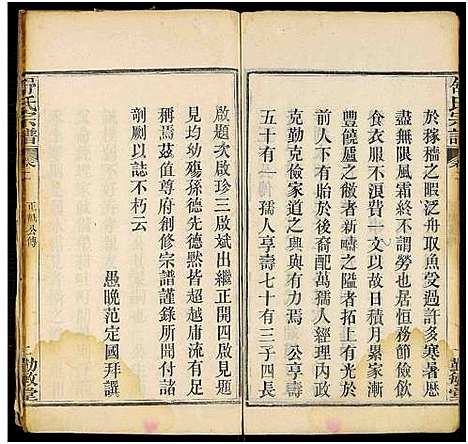 舒氏宗譜
勤敏堂
於稼穡之暇泛舟取魚受過許多寒暑歷
盡無限風霜亦不謂勞生居恒務節儉飲
食衣服不濫費一文以故日積月累家漸
豐饒廬之儆者新疇之隘者拓上有光於
前人下有貽於後裔配萬孺人經理內政
克勤克儉家道之興與有力焉　公享壽
五十有一　孺人享壽七十有三子四長
啟題次啟珍三啟斌出繼正開四啟見題
見均幼殤孫德先德黙皆超越庸流有足
稱焉茲值尊府創修宗譜謹錄所聞付諸
剞劂以誌不朽云
愚晚范定國拜譔
舒氏宗譜
卷一
正帆公傳
勤敏堂